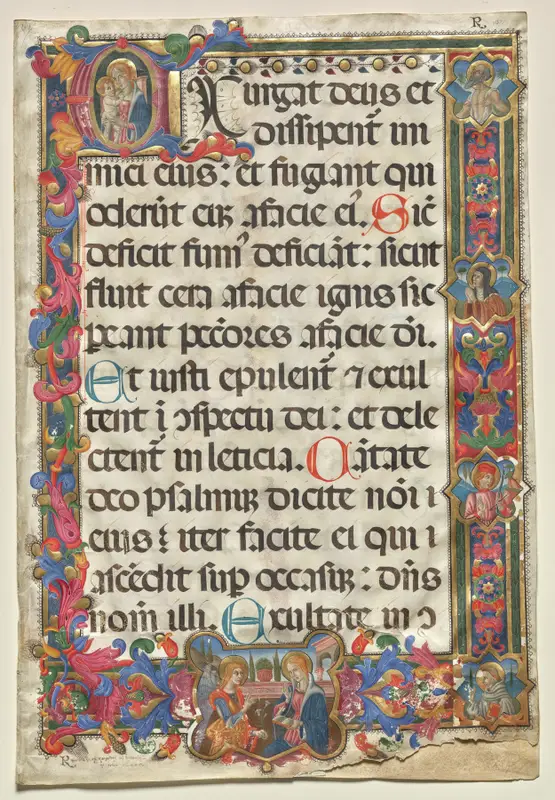 R
EXurgat deus et
dissipent̄ ini
mici eius: et fugiant qui
oderūt eūꝫ afacie eiꝰ. Sic̄
deficit fumꝰ deficiāt: sicut
fluit cera afacie ignis sic
pereant pec̄ores afacie d̄i.
Et iusti epulent̄ ⁊ exul
tent ī ↄspectu dei: et dele
ctent̄ in leticia. Cātate
deo psalmuꝫ dicite nōi i
eius: iter facite ei qui i
ascēdit suꝑ occasuꝫ: dn̄s
nom̄ illi. Exultate in ↄ
R